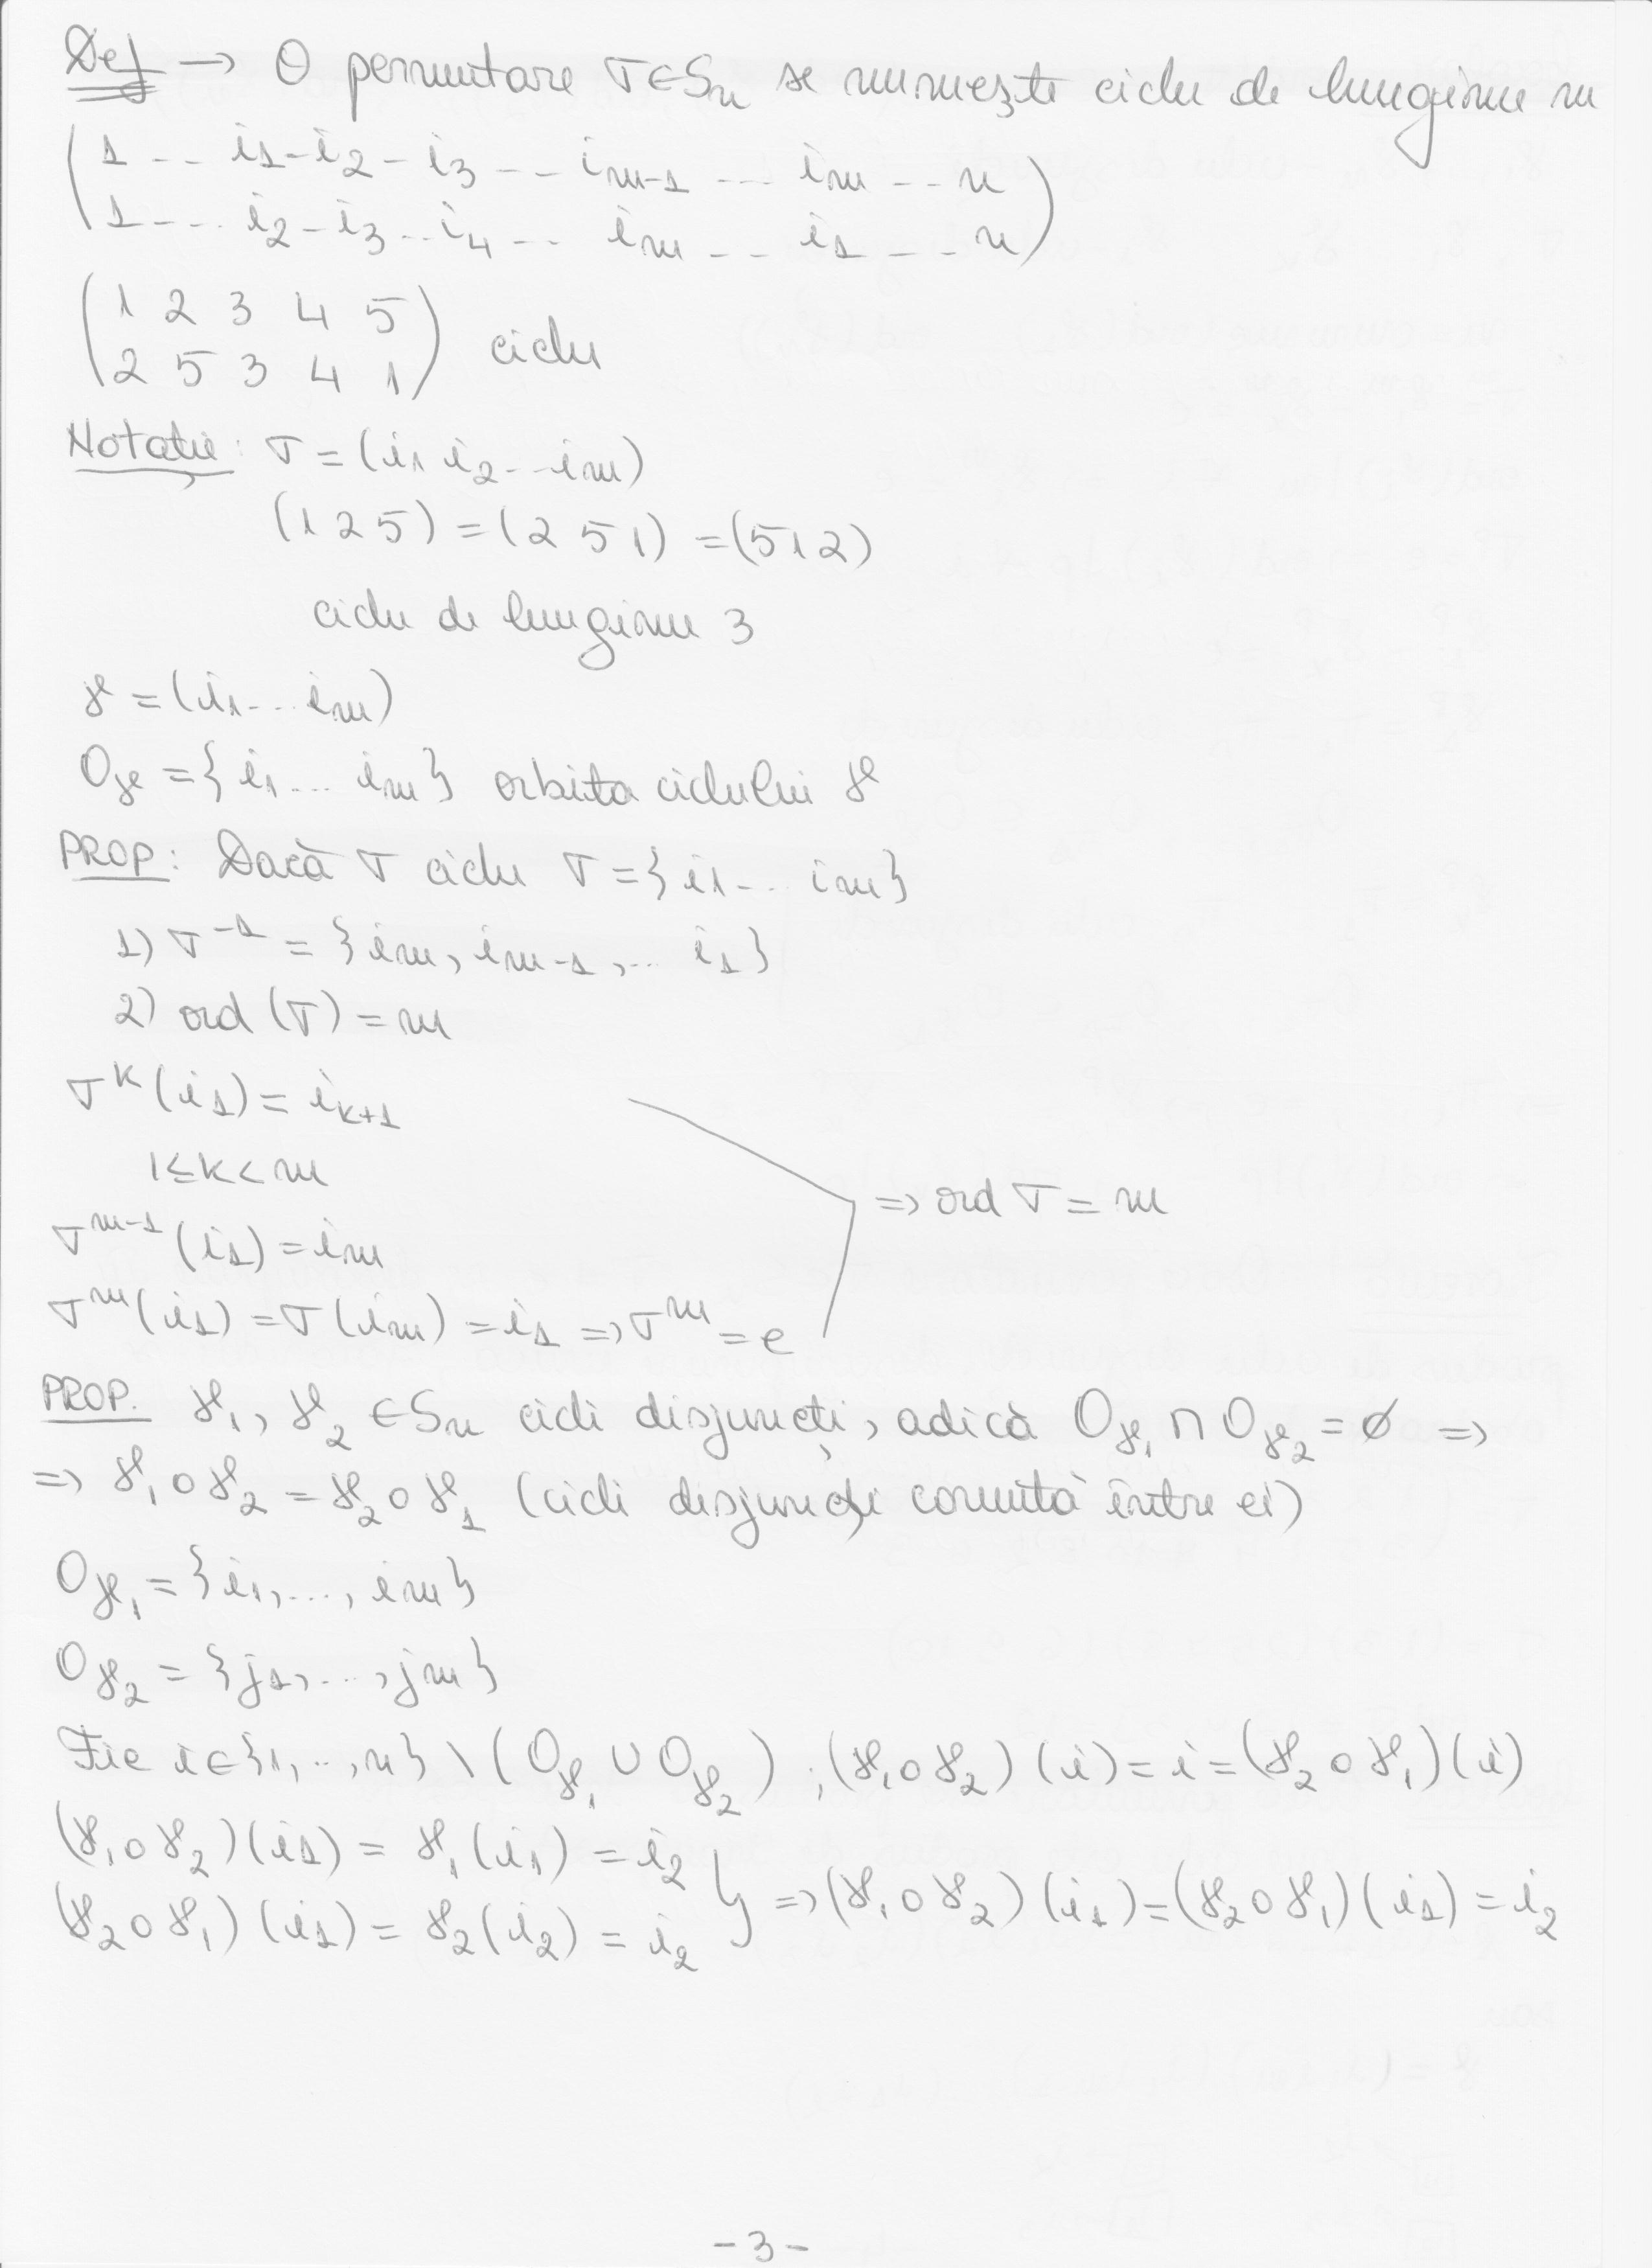 Def → O permutare σ∈Sn se numește ciclu de lungime m
(1 -- i1 - i2 - i3 -- im-1 --- im -- n)
(1 --- i2 - i3 -- i4 -- im -- i1 --- n)
(1 2 3 4 5)
(2 5 3 4 1) ciclu
Notație: σ = (i1 i2 -- im)
(1 2 5) = (2 5 1) = (5 1 2)
ciclu de lungime 3
γ = (i1 --- im)
Oγ = {i1 ... im} orbita ciclului γ
PROP: Dacă σ ciclu σ = {i1 --- im}
1) σ^-1 = {im, im-1, .. i1}
2) ord (σ) = m
σ^k (i1) = ik+1
1≤k<m
⇒ ord σ = m
σ^m-1 (i1) = im
σ^m (i1) = σ(im) = i1 ⇒ σ^m = e
PROP. γ1, γ2 ∈ Sn cicli disjuncți, adică Oγ1 ∩ Oγ2 = ∅ ⇒
⇒ γ1 o γ2 = γ2 o γ1 (cicli disjuncți comută între ei)
Oγ1 = {i1, ..., im}
Oγ2 = {j1, ..., jm}
Fie i∈{1, .., n} \ (Oγ1 ∪ Oγ2) ; (γ1 o γ2) (i) = i = (γ2 o γ1) (i)
(γ1 o γ2) (i1) = γ1 (i1) = i2
(γ2 o γ1) (i1) = γ2 (i2) = i2 } ⇒ (γ1 o γ2) (i1) = (γ2 o γ1) (i1) = i2
- 3 -